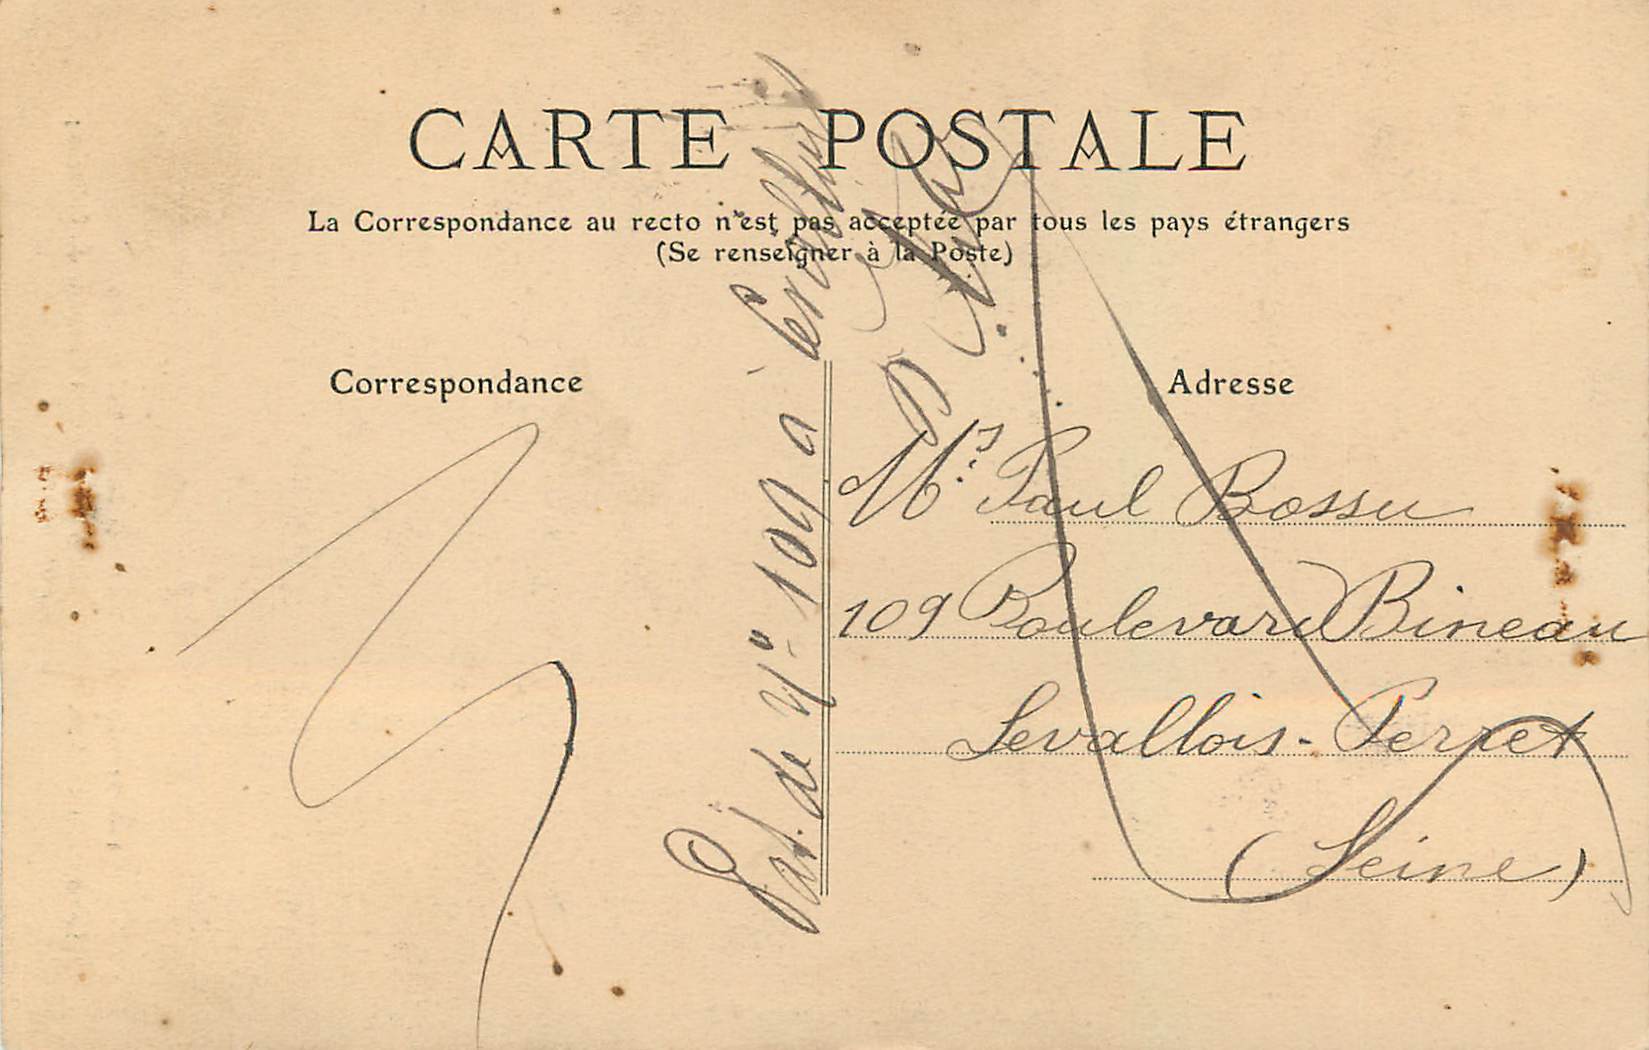 CARTE POSTALE
La Correspondance au recto n'est pas acceptée par tous les pays étrangers
(Se renseigner à la Poste)
Correspondance
Adresse
Mr Paul Bossu
109 Boulevard Bineau
Levallois-Perret
(Seine)
Pas de N° 109 à Levallois